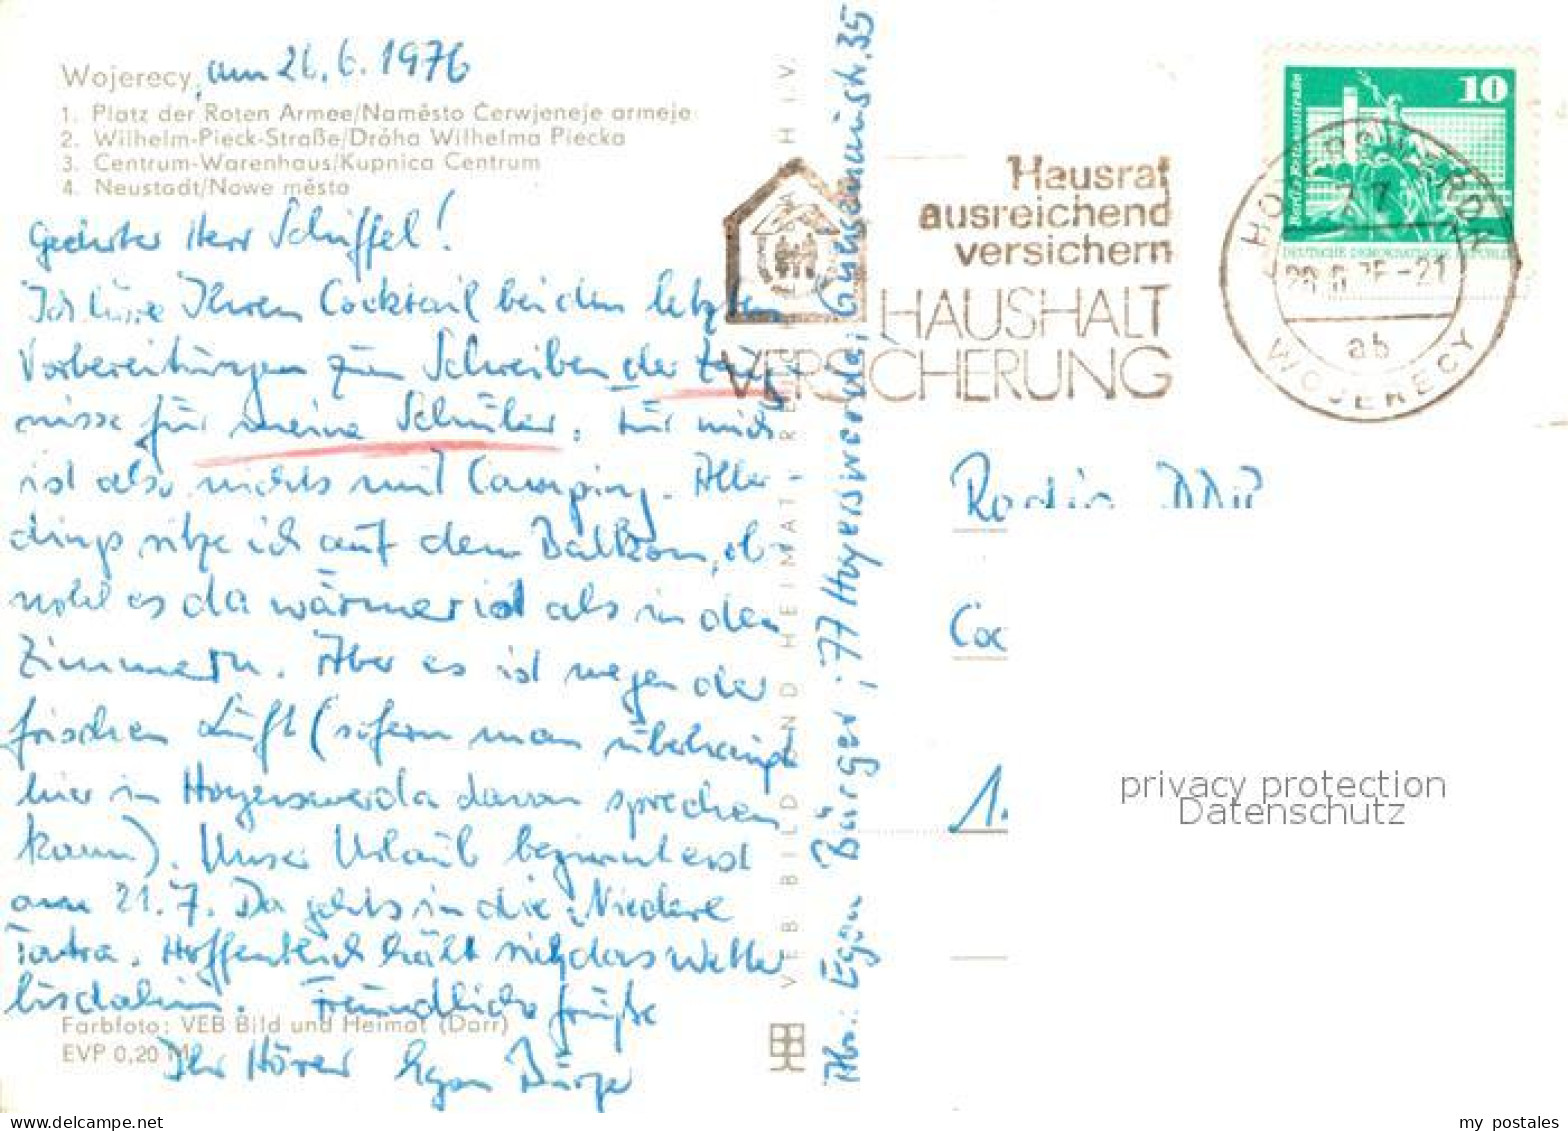 Wojerecy, am 26. 6. 1976
1. Platz der Roten Armee/Naměsto Čerwjeneje armeje
2. Wilhelm-Pieck-Straße/Dróha Wilhelma Piecka
3. Centrum-Warenhaus/Kupnica Centrum
4. Neustadt/Nowe město
Geehrter Herr Schiffel!
Ich höre Ihren Cocktail bei den letzten
Vorbereitungen zum Schreiben der Zeug-
nisse für meine Schüler. Für mich
ist also nichts mit Camping. Aller-
dings sitze ich auf dem Balkon, ob-
wohl es da wärmer ist als in den
Zimmern. Aber es ist wegen der
frischen Luft (sofern man überhaupt
hier in Hoyerswerda davon sprechen
kann). Unser Urlaub beginnt erst
am 21. 7. Da gehts in die Niedere
Tatra. Hoffentlich hält sich das Wetter
bis dahin. Freundliche Grüße
Ihr Hörer Egon Bürger
Farbfoto: VEB Bild und Heimat (Darr)
EVP 0,20 M
VEB BILD UND HEIMAT REICHENBACH I. V.
Abs.: Egon Bürger; 77 Hoyerswerda,
Hausrat
ausreichend
versichern
HAUSHALT
VERSICHERUNG
10
Berlin Rathausstraße
DEUTSCHE DEMOKRATISCHE REPUBLIK
HOYERSWERDA
77
-21
ab
WOJERECY
Radio DDR
Coc
1.
privacy protection
Datenschutz
my postales